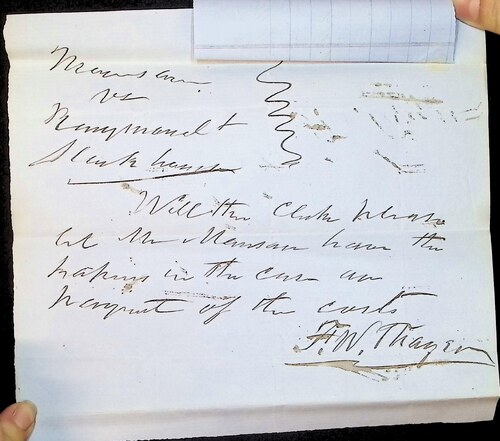 Manson
vs
Raymond &
Will the Clerk please
let Mr Manson have the
papers in the case on
payment of the costs
F. W. Thayer